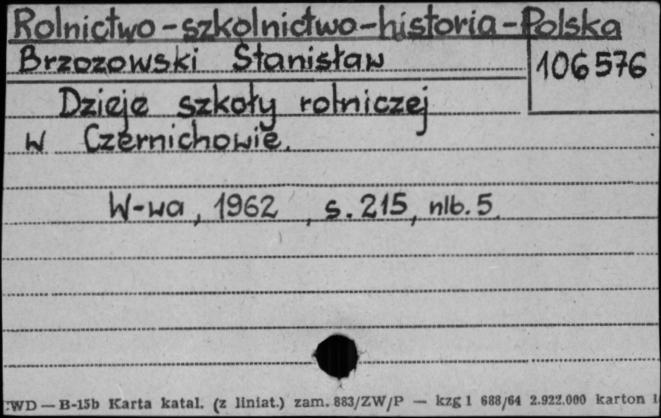 Rolnictwo-szkolnictwo-historia-Polska
Brzozowski Stanisław
106576
Dzieje szkoły rolniczej
w Czernichowie.
W-wa, 1962, s. 215, nlb. 5.
CWD — B-15b Karta katal. (z liniat.) zam. 883/ZW/P — kzg 1 688/64 2.922.000 karton